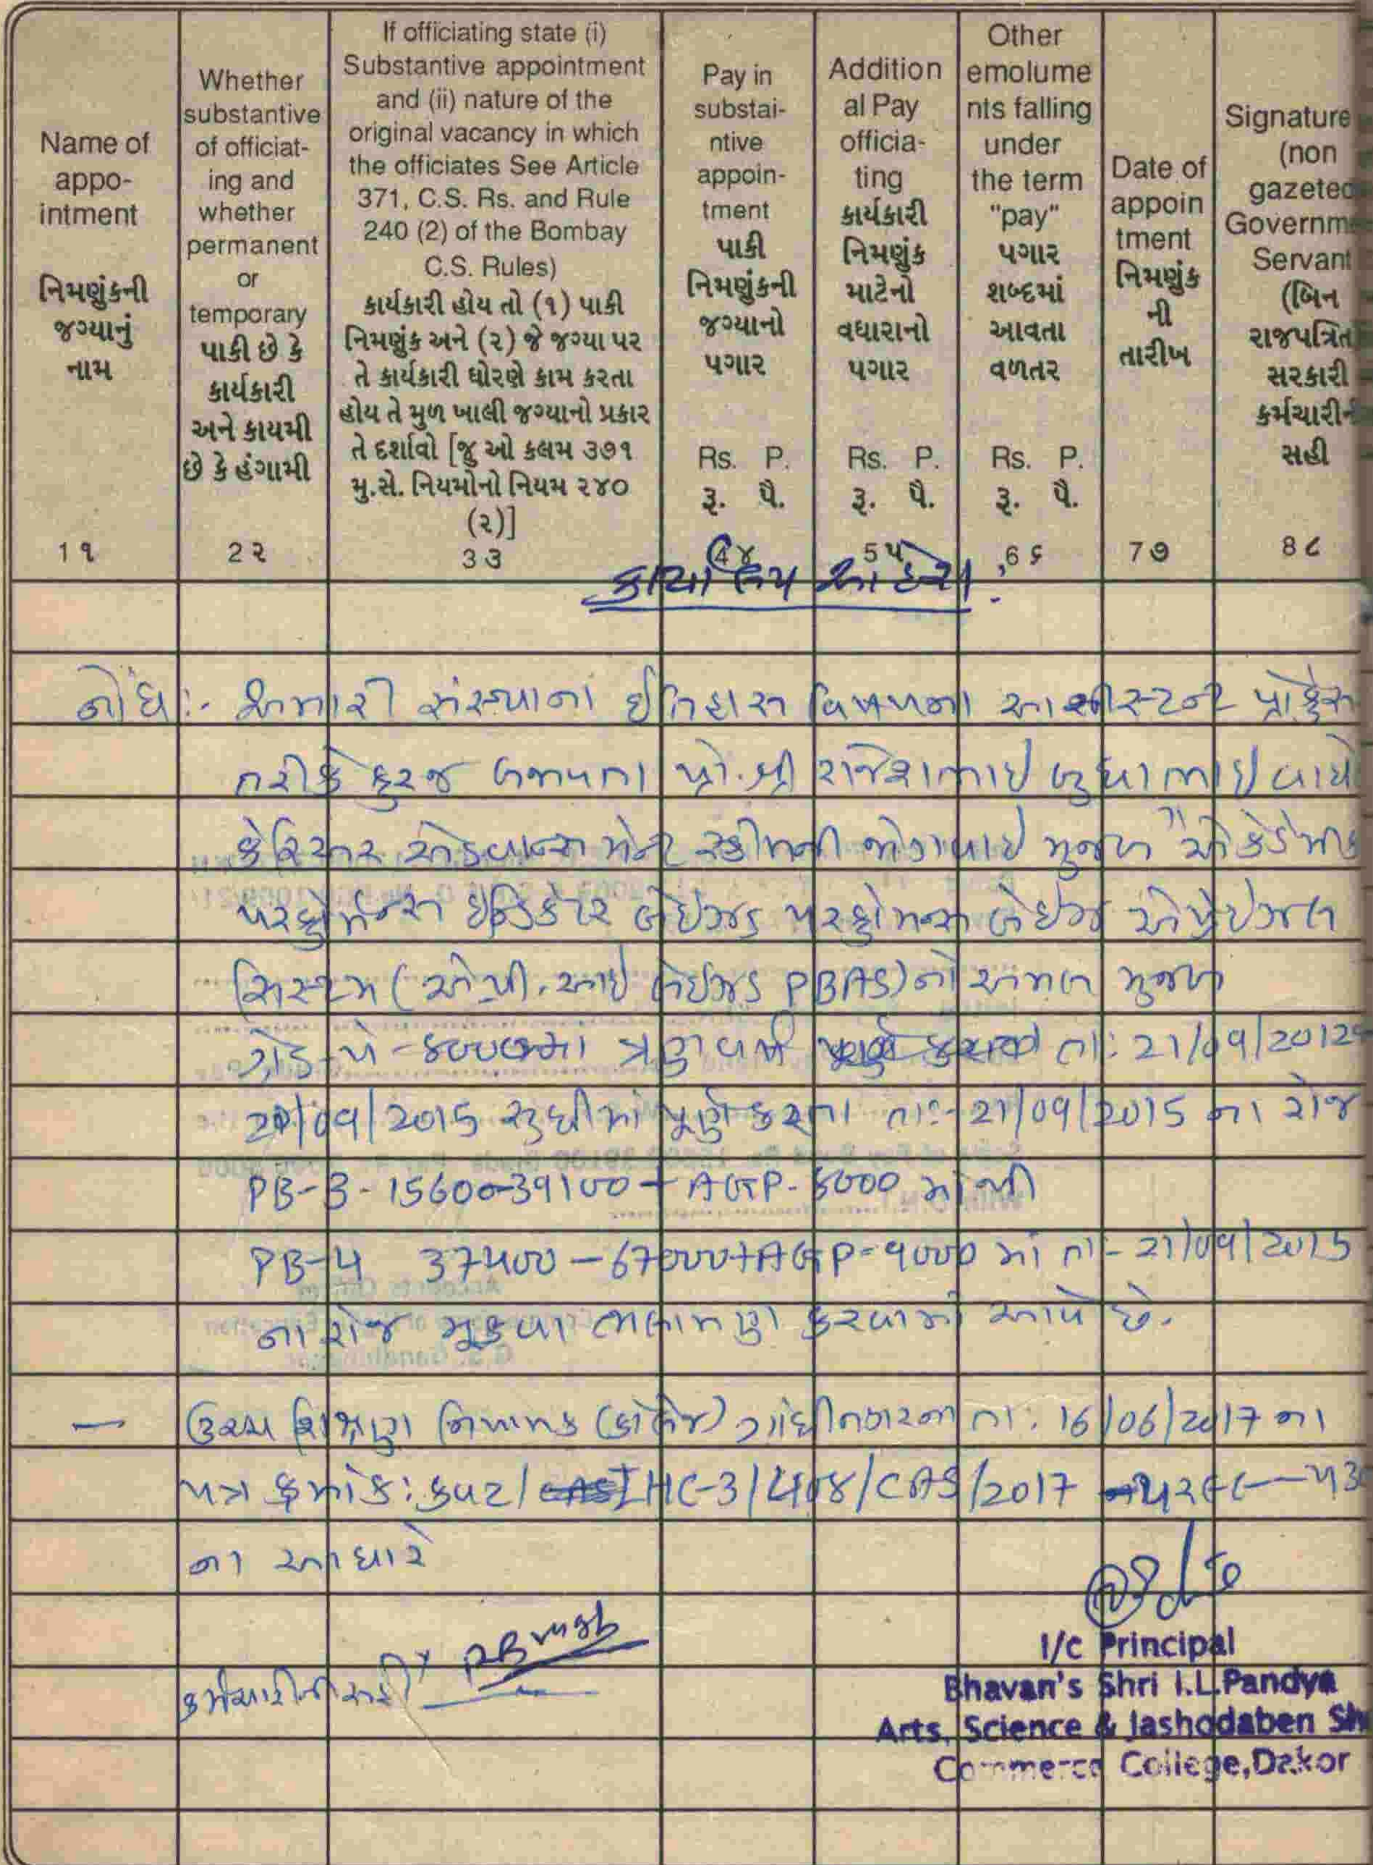 Name of
appo-
intment
નિમણુંકની
જગ્યાનું
નામ
1 ૧
Whether
substantive
of officiat-
ing and
whether
permanent
or
temporary
પાકી છે કે
કાર્યકારી
અને કાયમી
છે કે હંગામી
2 ૨
If officiating state (i)
Substantive appointment
and (ii) nature of the
original vacancy in which
the officiates See Article
371, C.S. Rs. and Rule
240 (2) of the Bombay
C.S. Rules)
કાર્યકારી હોય તો (૧) પાકી
નિમણુંક અને (૨) જે જગ્યા પર
તે કાર્યકારી ધોરણે કામ કરતા
હોય તે મુળ ખાલી જગ્યાનો પ્રકાર
તે દર્શાવો [જુ ઓ કલમ ૩૭૧
મુ.સે. નિયમોનો નિયમ ૨૪૦
(૨)]
3 ૩
Pay in
substai-
ntive
appoin-
tment
પાકી
નિમણુંકની
જગ્યાનો
પગાર
Rs. P.
રૂ. પૈ.
4 ૪
Addition
al Pay
officia-
ting
કાર્યકારી
નિમણુંક
માટેનો
વધારાનો
પગાર
Rs. P.
રૂ. પૈ.
5 ૫
Other
emolume
nts falling
under
the term
"pay"
પગાર
શબ્દમાં
આવતા
વળતર
Rs. P.
રૂ. પૈ.
6 ૬
Date of
appoin
tment
નિમણુંક
ની
તારીખ
7 ૭
Signature
(non
gazeted
Governm
Servant
(બિન
રાજપત્રિત
સરકારી
કર્મચારીની
સહી
8 ૮
કાર્યાલય આદેશ
નોંધ :- અમારી સંસ્થાના ઈતિહાસ વિષયના આસીસ્ટન્ટ પ્રોફેસ
તરીકે ફરજ બજાવતા પ્રો. શ્રી રાજેશભાઈ બુધાભાઇ વાઘે
કેરિયર એડવાન્સમેન્ટ સ્કીમની જોગવાઇ મુજબ "એકેડેમીક
પરફોર્મન્સ ઇન્ડિકેટર બેઇઝડ પરફોમન્સ બેઇઝ એપ્રેઇઝલ
સિસ્ટમ (એ.પી.આઇ બેઇઝડ PBAS) નો અમલ મુજબ
ગ્રેડ-પે-૮૦૦૦મા ત્રણ વર્ષ તા: 21/09/2012
20/09/2015 સુધીમાં પૂર્ણ કરતા તા:- 21/09/2015 ના રોજ
PB-3 - 15600-39100 + AGP- 8000 માંથી
PB-4 37400 - 67000 + AGP = 9000 માં તા - 21/09/2015
ના રોજ મૂકવા ભલામણ કરવામાં આવે છે.
— ઉચ્ચ શિક્ષણ નિયામક (કોલેજ) ગાંધીનગરના તા: 16/06/2017 ના
પત્ર ક્રમાંક: કવટ / HC-3 /408/CAS/2017
ના આધારે
કર્મચારીની સહી
I/c Principal
Bhavan's Shri I.L.Pandya
Arts, Science & Jashodaben Sh
Commerce College,Dakor